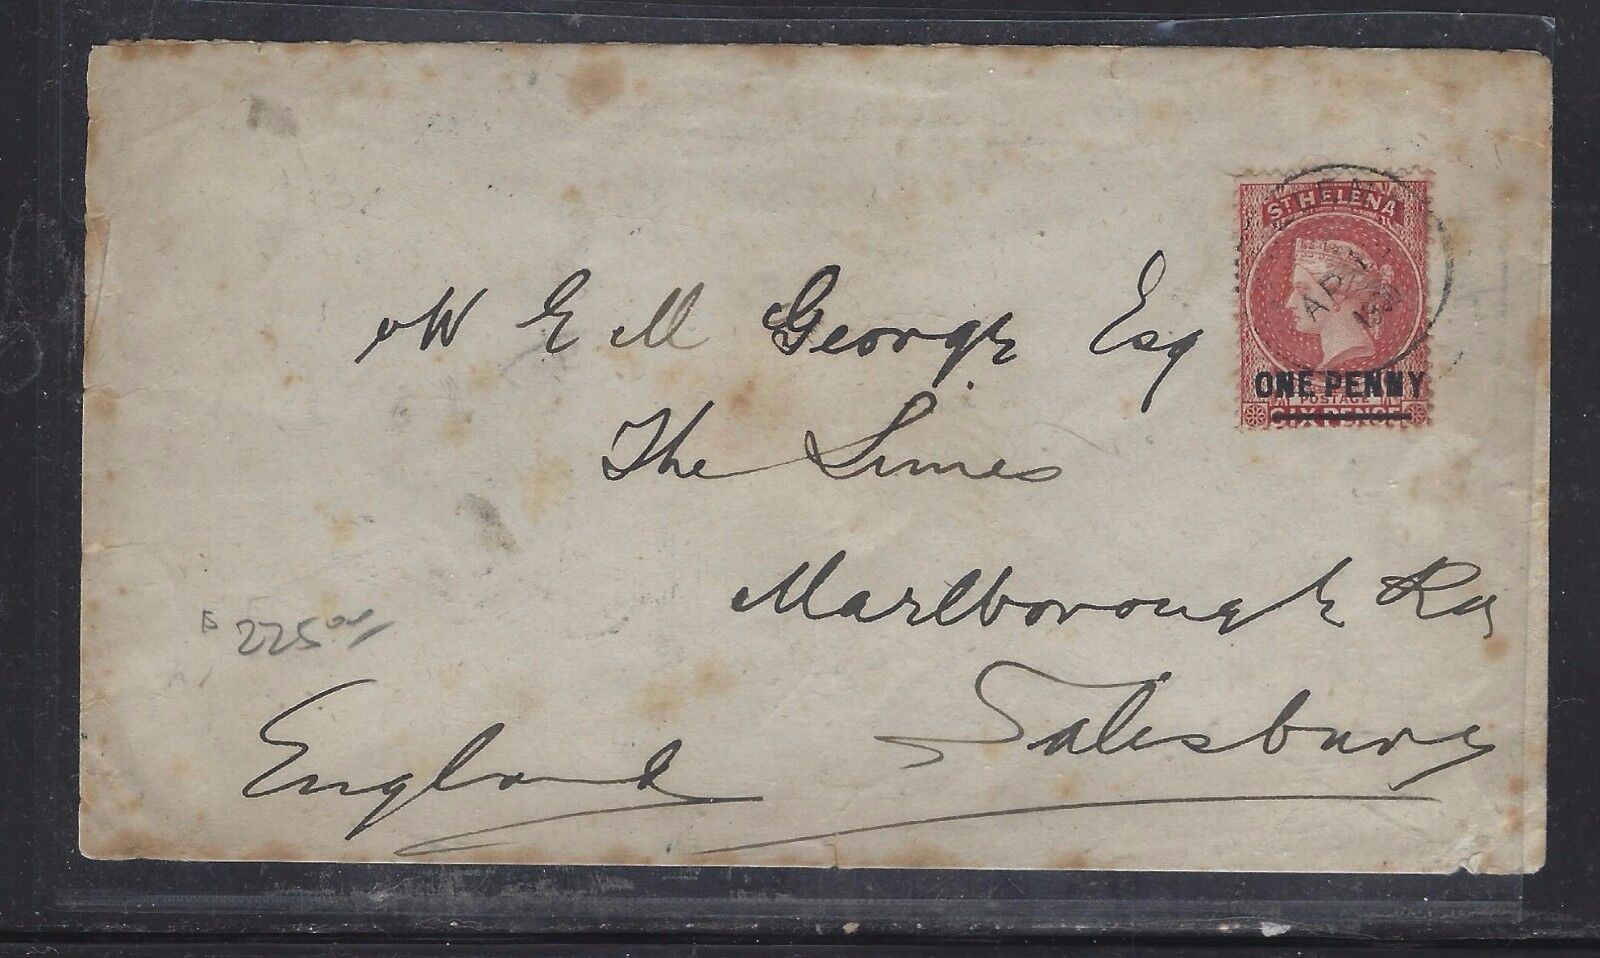 W E M George Esq
The Limes
Marlborough Rd
Salisbury
England
225.00
ST HELENA
AP
ONE PENNY
POSTAGE
SIX PENCE